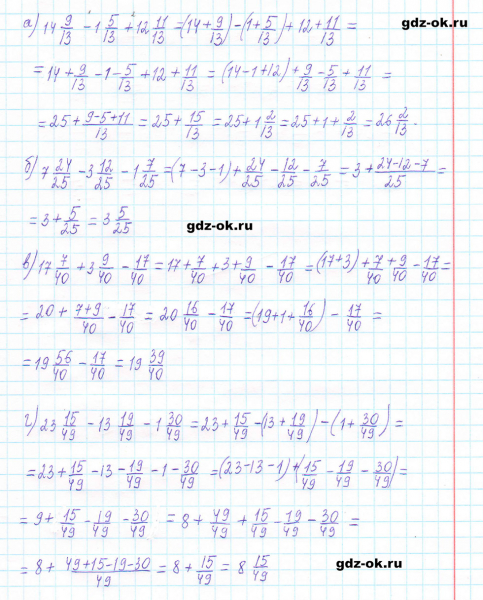 gdz-ok.ru
а) 14 9/13 - 1 5/13 + 12 11/13 = (14 + 9/13) - (1 + 5/13) + 12 + 11/13 =
= 14 + 9/13 - 1 - 5/13 + 12 + 11/13 = (14 - 1 + 12) + 9/13 - 5/13 + 11/13 =
= 25 + (9-5+11)/13 = 25 + 15/13 = 25 + 1 2/13 = 25 + 1 + 2/13 = 26 2/13.
б) 7 24/25 - 3 12/25 - 1 7/25 = (7 - 3 - 1) + 24/25 - 12/25 - 7/25 = 3 + (24-12-7)/25 =
= 3 + 5/25 = 3 5/25
gdz-ok.ru
в) 17 7/40 + 3 9/40 - 17/40 = 17 + 7/40 + 3 + 9/40 - 17/40 = (17+3) + 7/40 + 9/40 - 17/40 =
= 20 + (7+9)/40 - 17/40 = 20 16/40 - 17/40 = (19 + 1 + 16/40) - 17/40 =
= 19 56/40 - 17/40 = 19 39/40
gdz-ok.ru
г) 23 15/49 - 13 19/49 - 1 30/49 = 23 + 15/49 - (13 + 19/49) - (1 + 30/49) =
= 23 + 15/49 - 13 - 19/49 - 1 - 30/49 = (23 - 13 - 1) + (15/49 - 19/49 - 30/49) =
= 9 + 15/49 - 19/49 - 30/49 = 8 + 49/49 + 15/49 - 19/49 - 30/49 =
= 8 + (49+15-19-30)/49 = 8 + 15/49 = 8 15/49
gdz-ok.ru